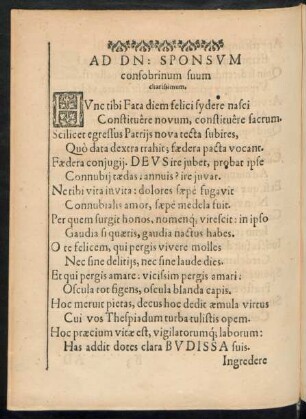 AD DN: SPONSVM
consobrinum suum
charissimum,
HVnc tibi Fata diem felici sydere nasci
Constituêre novum, constituêre sacrum.
Scilicet egressus Patrijs nova tecta subires,
Quò data dextra trahit; fædera pacta vocant.
Fædera conjugij. DEUS ire juber, probat ipse
Connubij tædas: annuis? ire juvat.
Ne tibi vita invita: dolores sæpè fugavit
Connubialis amor, sæpè medela fuit.
Per quem surgit honos, nomenq; virescit: in ipso
Gaudia si quæris, gaudia nactus habes.
O te felicem, qui pergis vivere molles
Nec sine delitijs, nec sine laude dies.
Et qui pergis amare: vicissim pergis amari:
Oscula tot figens, oscula blanda capis.
Hoc meruit pietas, decus hoc dedit æmula virtus
Cui vos Thespiadum turba tulistis opem.
Hoc præcium vitæ est, vigilatorumq; laborum:
Has addit dotes clara BVDISSA suis.
Ingredere